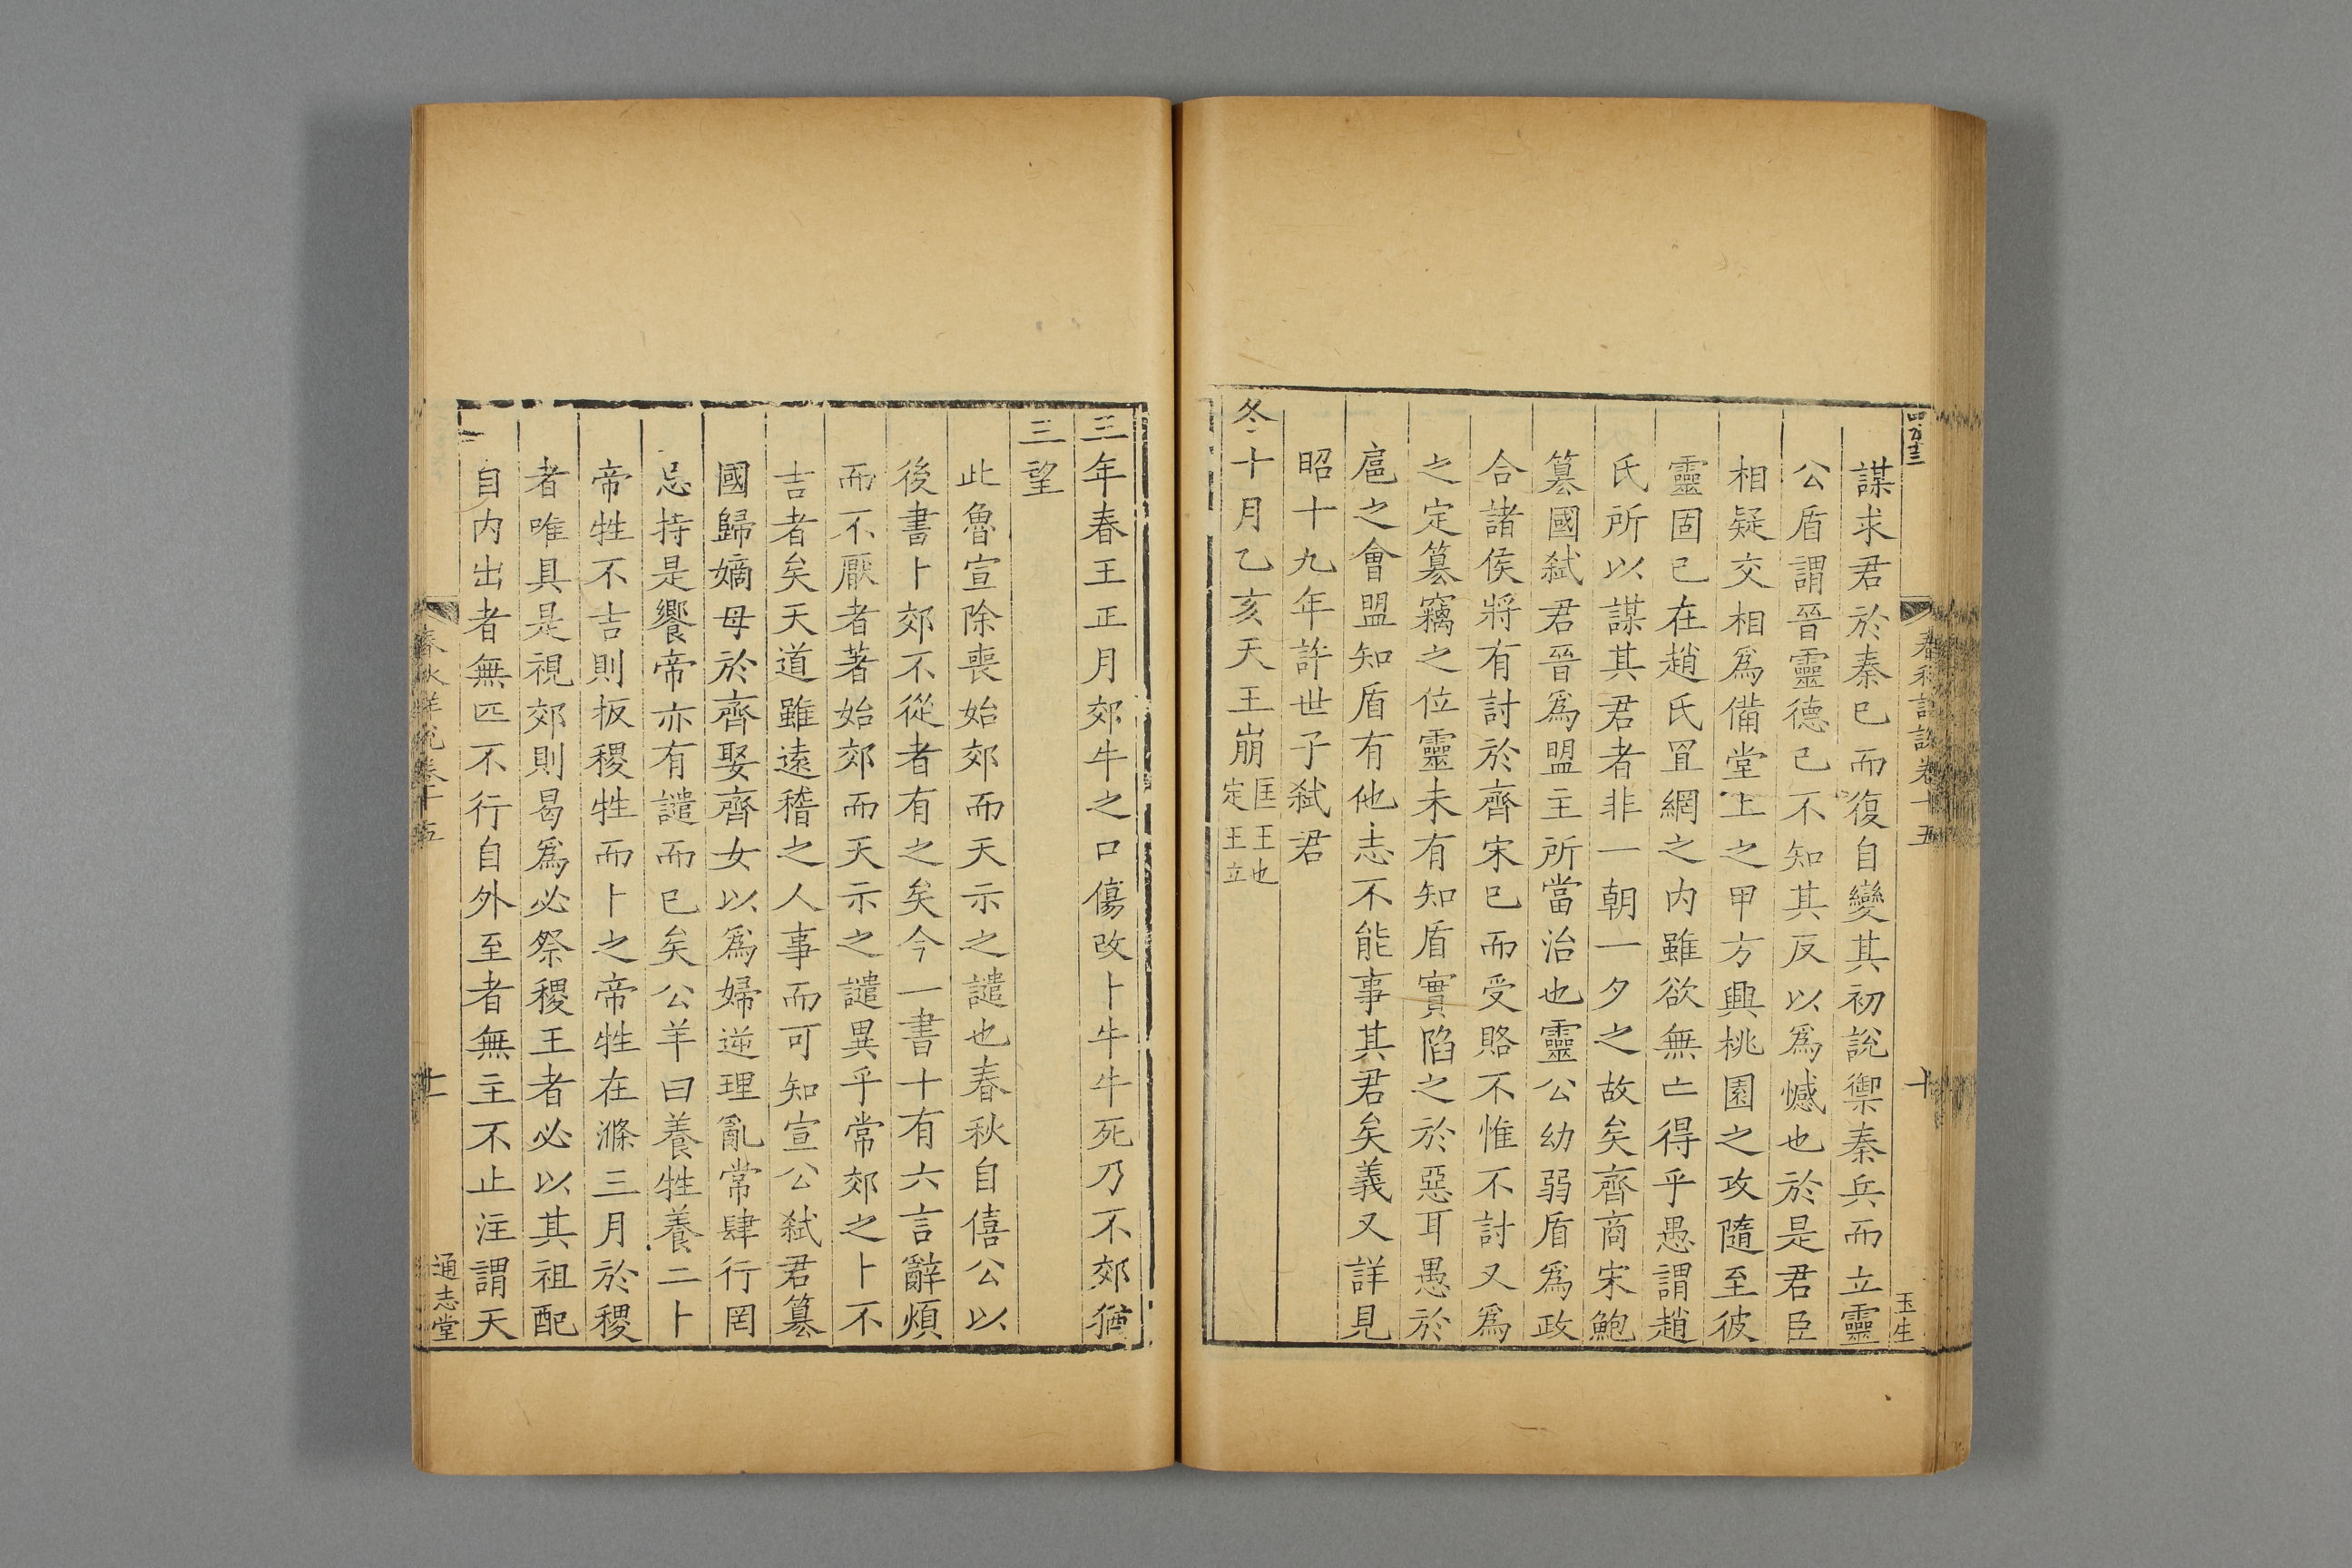 春秋詳說卷十五
十
玉生
謀求君於秦已而復自變其初說禦秦兵而立靈
公盾謂晉靈德己不知其反以爲憾也於是君臣
相疑交相爲備堂上之甲方興桃園之攻隨至彼
靈固已在趙氏罝網之内雖欲無亡得乎愚謂趙
氏所以謀其君者非一朝一夕之故矣齊商宋鮑
篡國弑君晉爲盟主所當治也靈公幼弱盾爲政
合諸侯將有討於齊宋已而受賂不惟不討又爲
之定篡竊之位靈未有知盾實陷之於惡耳愚於
扈之會盟知盾有他志不能事其君矣義又詳見
昭十九年許世子弑君
冬十月乙亥天王崩匡王也定王立
三年春王正月郊牛之口傷改卜牛牛死乃不郊猶
三望
此魯宣除喪始郊而天示之譴也春秋自僖公以
後書卜郊不從者有之矣今一書十有六言辭煩
而不厭者著始郊而天示之譴異乎常郊之卜不
吉者矣天道雖遠稽之人事而可知宣公弑君篡
國歸嫡母於齊娶齊女以爲婦逆理亂常肆行罔
忌持是饗帝亦有譴而已矣公羊曰養牲養二卜
帝牲不吉則扳稷牲而卜之帝牲在滌三月於稷
者唯具是視郊則曷爲必祭稷王者必以其祖配
自内出者無匹不行自外至者無主不止注謂天
春秋詳說卷十五
十一
通志堂